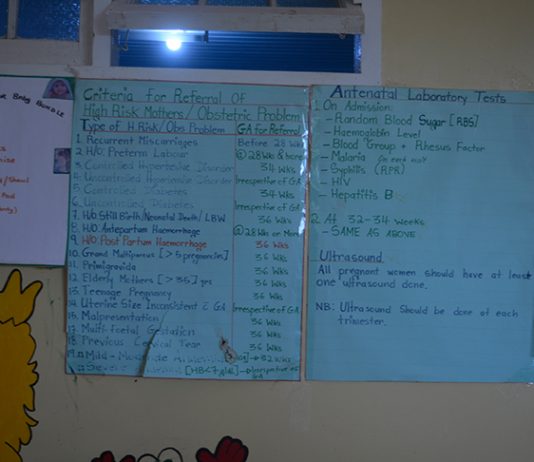 BABY BUNDLE
Criteria for Referral Of
High Risk Mothers/ Obstetric Problem
Type of H.Risk/Obs Problem GA for Referral
1. Recurrent Miscarriages Before 28 Wks
2. H/O Preterm Labour @ 28 Wks & more
3. Controlled Hypertensive Disorder 34 Wks
4. Uncontrolled Hypertensive Disorder Irrespective of GA
5. Controlled Diabetes 34 Wks
6. Uncontrolled Diabetes Irrespective of GA
7. H/o Still Birth/Neonatal Death/ LBW 36 Wks
8. H/O Antepartum Haemorrhage @ 28 Wks or More
9. H/O Post Partum Haemorrhage 36 Wks
10. Grand Multiparous [>5 pregnancies] 36 Wks
11. Primigravida 36 Wks
12. Elderly Mothers [>35] yrs 36 Wks
13. Teenage Pregnancy 36 Wks
14. Uterine Size Inconsistent c̄ GA Irrespective of GA
15. Malpresentation 36 Wks
17. Multi-foetal Gestation 36 Wks
18. Previous Cervical Tear 36 Wks
19. Mild - → 32 Wks
Severe [HB<7g/dl] → Irrespective of GA
Antenatal Laboratory Tests
1. On Admission:
- Random Blood Sugar [RBS]
- Haemoglobin Level
- Blood Group + Rhesus Factor
- Malaria
- Syphilis (RPR)
- HIV
- Hepatitis B
2. At 32-34 weeks
- SAME AS ABOVE
Ultrasound
All pregnant women should have at least
one ultrasound done.
NB: Ultrasound Should be done at each
trimester.